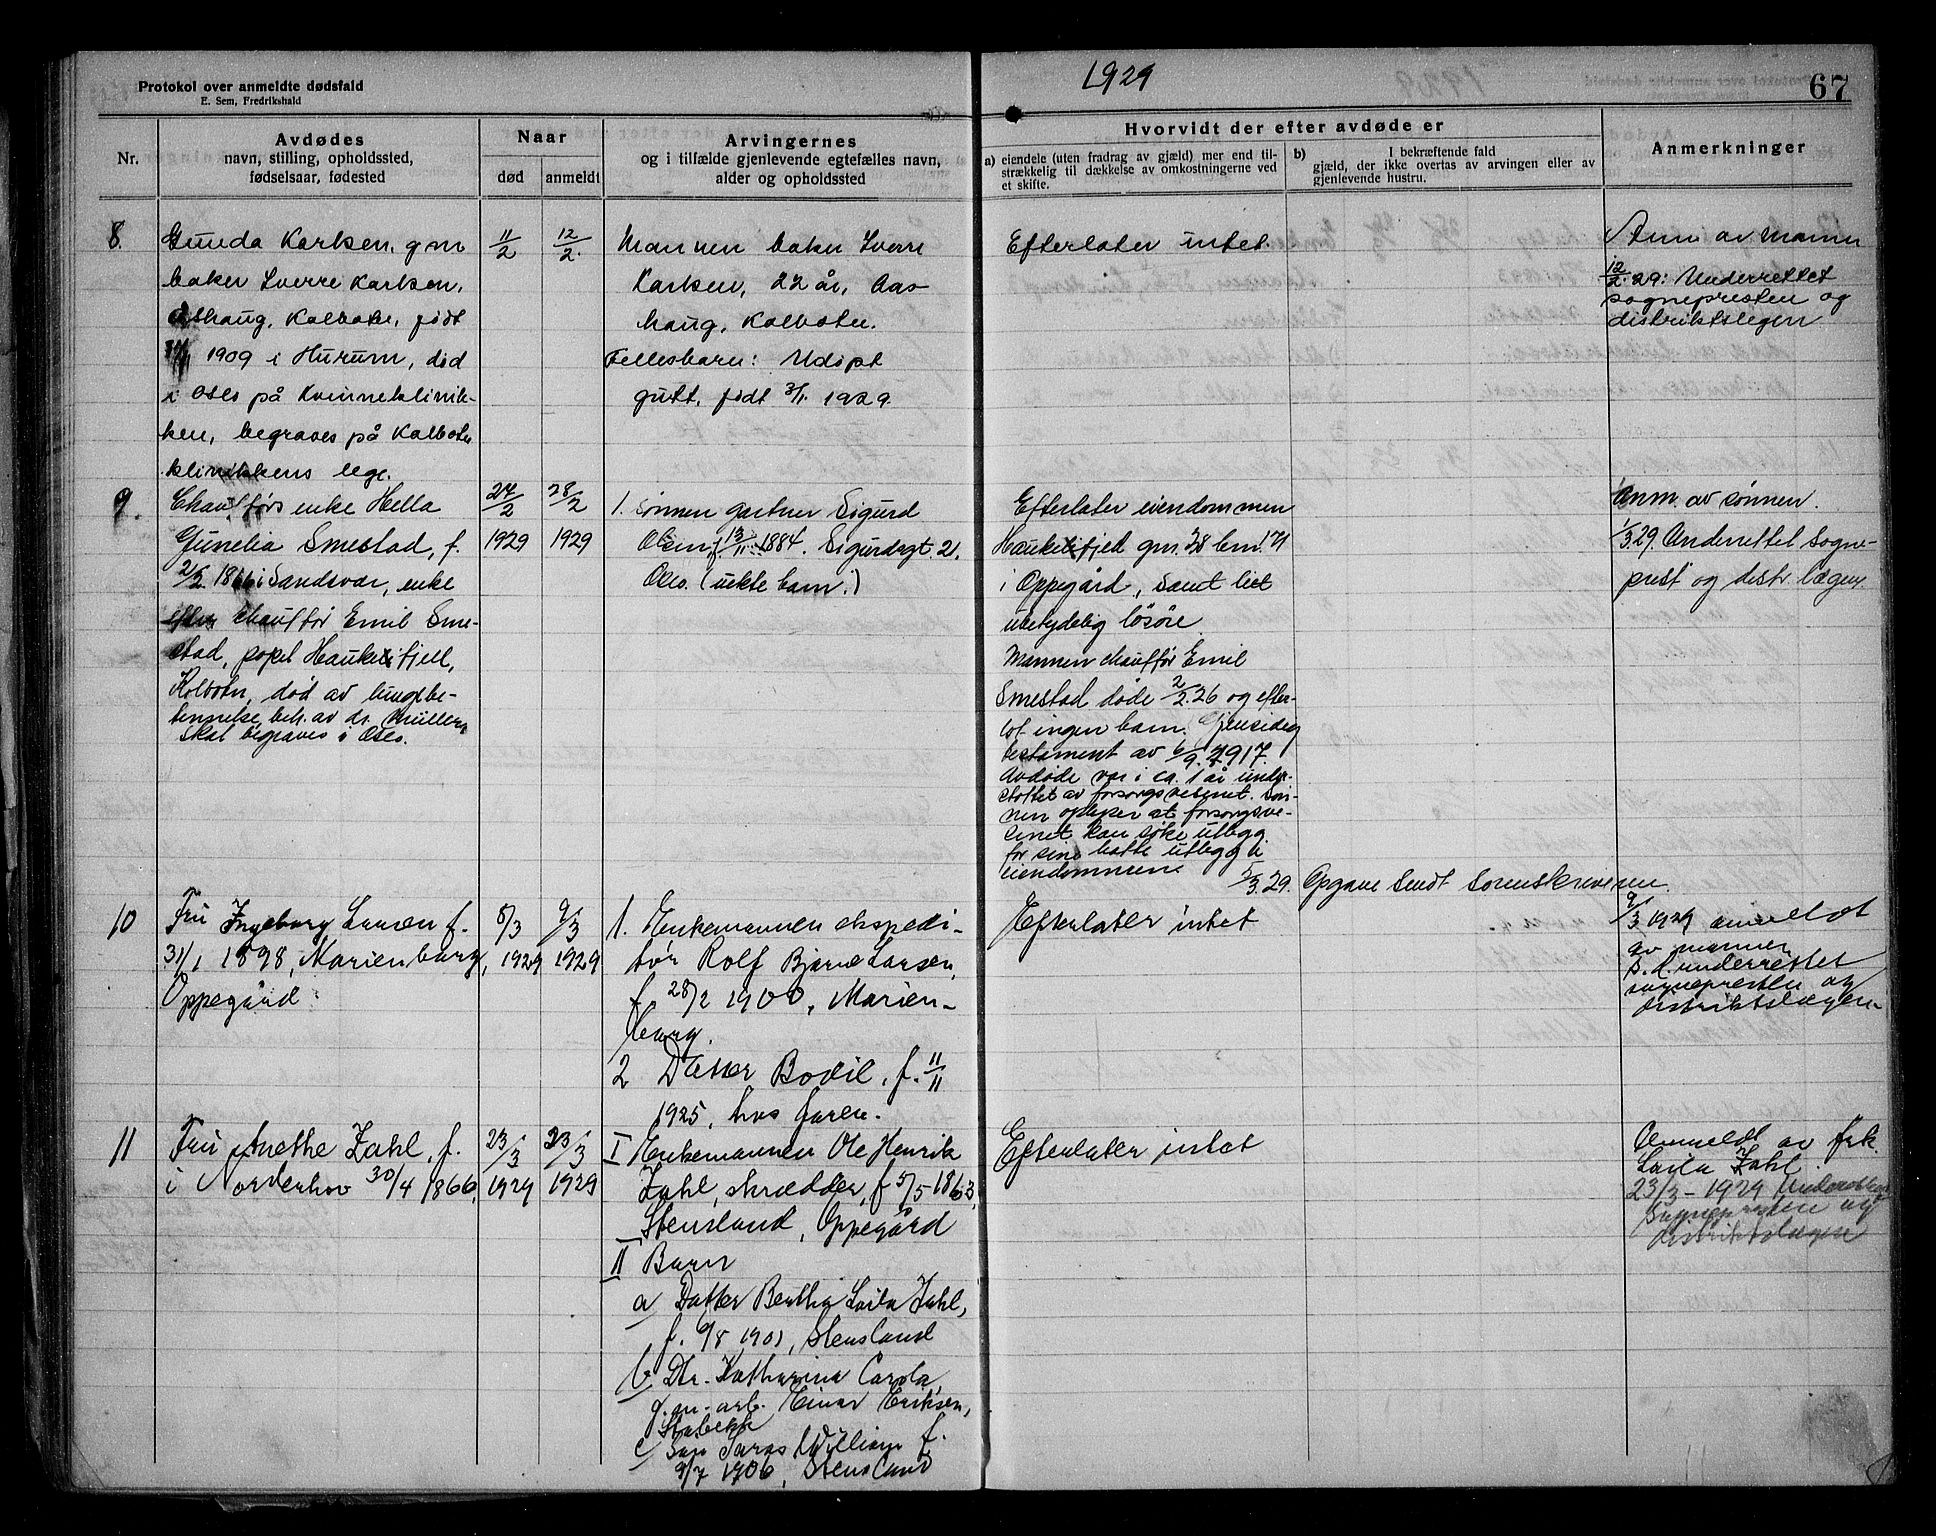 Protokol over anmeldte dødsfald
E. Sem, Fredrikshald
1929
67
Nr.
Avdødes
navn, stilling, opholdssted,
fødselsaar, fødested
Naar
død
anmeldt
Arvingernes
og i tilfælde gjenlevende egtefælles navn,
alder og opholdssted
Hvorvidt der efter avdøde er
a) eiendele (uten fradrag av gjæld) mer end til-
strækkelig til dækkelse av omkostningerne ved
et skifte.
b) I bekræftende fald
gjæld, der ikke overtas av arvingen eller av
gjenlevende hustru.
Anmerkninger
8.
Gunda Karlsen, gm
baker Sverre Karlsen,
Åshaug, Kolbotn, født
1909 i Hurum, død
i Oslo på Kvinneklinik-
ken, begraves på Kolbotn
klinikkens lege.
11/2
12/2.
Mannen baker Sverre
Karlsen, 22 år, Aas-
haug, Kolbotn.
Fellesbarn: Udøpt
gutt, født 3/1. 1929.
Efterlater intet.
Anm av mannen
12/2.29: Underrettet
sognepresten og
distriktslegen
9.
Chaufførs enke Hella
Gunelia Smestad, f.
2/2 1866 i Sandsvær, enke
efter chauffør Emil Sme-
stad, popel Haukelifjell,
Kolbotn, død av lungebe-
tennelse, beh. av dr. Müller,
Skal begraves i Oslo.
24/2
1929
28/2
1929
1. Sønnen gartner Sigurd
Olsen, f. 13/11 1884. Sigurdsgt. 21.
Oslo. (uekte barn.)
Efterlater eiendommen
Haukelifjell gnr. 38 bnr. 171
i Oppegård, samt litt
ubetydelig løsøre.
Mannen chauffør Emil
Smestad døde 2/2.26 og efter-
lot ingen barn. Gjensidig
testament av 6/9. 1917.
Avdøde var i ca. 1 år under-
støttet av forsorgsvesenet. Søn-
nen oplyser at forsorgsve-
senet kan søke utlegg
for sine hatte utlegg i
eiendommen.
5/3.29. Opgave sendt Sorenskriveren.
Anm. av sønnen.
1/3.29. Underrettet sogne-
prest og distr. lægen.
10
Fru Ingeborg Larsen f.
31/1 1898, Marienborg,
Oppegård
8/3
1929
9/3
1929
1. Enkemannen ekspedi-
tør Rolf Bjarne Larsen,
f. 28/2 1900, Marien-
borg.
2 Datter Bodil, f. 11/11
1925, hos faren.
Efterlater intet
9/3 1929 anmeldt
av mannen
S. d. underrettet
sognepresten og
distriktslægen.
11
Fru Anethe Zahl, f.
i Norderhov 30/4 1866,
23/3
1929
23/3
1929
I Enkemannen Ole Henrik
Zahl, skrædder, f 5/5 1863,
Stensland, Oppegård
II Barn
a Datter Berthia Laila Zahl,
f. 9/8 1901, Stensland
b Dtr. Katharina Carola
g. m. arb. Einar Eriksen,
Stabekk
c Søn William f.
9/7 1906, Stensland
Efterlater intet
Anmeldt av frk.
Laila Zahl.
23/3 - 1929 Underrettet
Sognepresten og
distriktslægen